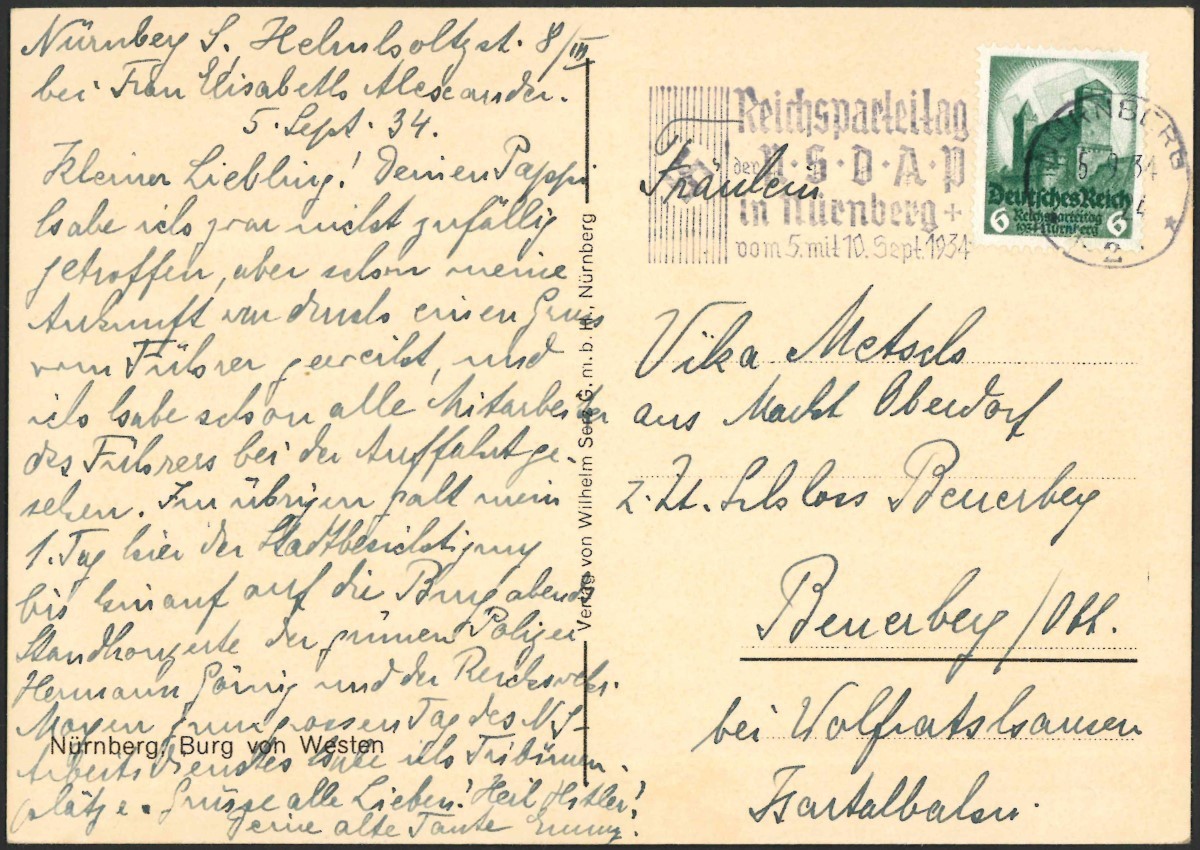 Nürnberg S. Helmholtzst. 8/III
bei Frau Elisabeth Alexander.
5. Sept. 34.
Kleiner Liebling! Deinen Pappi
habe ich zwar nicht zufällig
getroffen, aber schon meine
Ankunft war durch einen Gruss
vom Führer geweiht, und
ich habe schon alle Mitarbeiter
des Führers bei der Auffahrt ge-
sehen. Im übrigen galt mein
1. Tag hier der Stadtbesichtigung
bis hinauf auf die Burg abends
Standkonzerte der grünen Polizei
Hermann Göring und der Reichswehr.
Morgen zum grossen Tag des N.S-
Arbeitsdienstes habe ich Tribünen-
plätze. Grüsse alle Lieben! Heil Hitler!
Deine alte Tante Emmy.
Nürnberg, Burg von Westen
Verlag von Wilhelm G. m. b. H., Nürnberg
Reichsparteitag
der N·S·D·A·P
in Nürnberg +
vom 5. mit 10. Sept. 1934
NÜRNBERG
5.9.34
2
Deutsches Reich
6 Reichsparteitag 6
1934 Nürnberg
Fräulein
Vika
aus Markt Oberdorf
z. Zt. Schloss Beuerberg
Beuerberg/Obb.
bei Wolfratshausen
Isartalbahn.